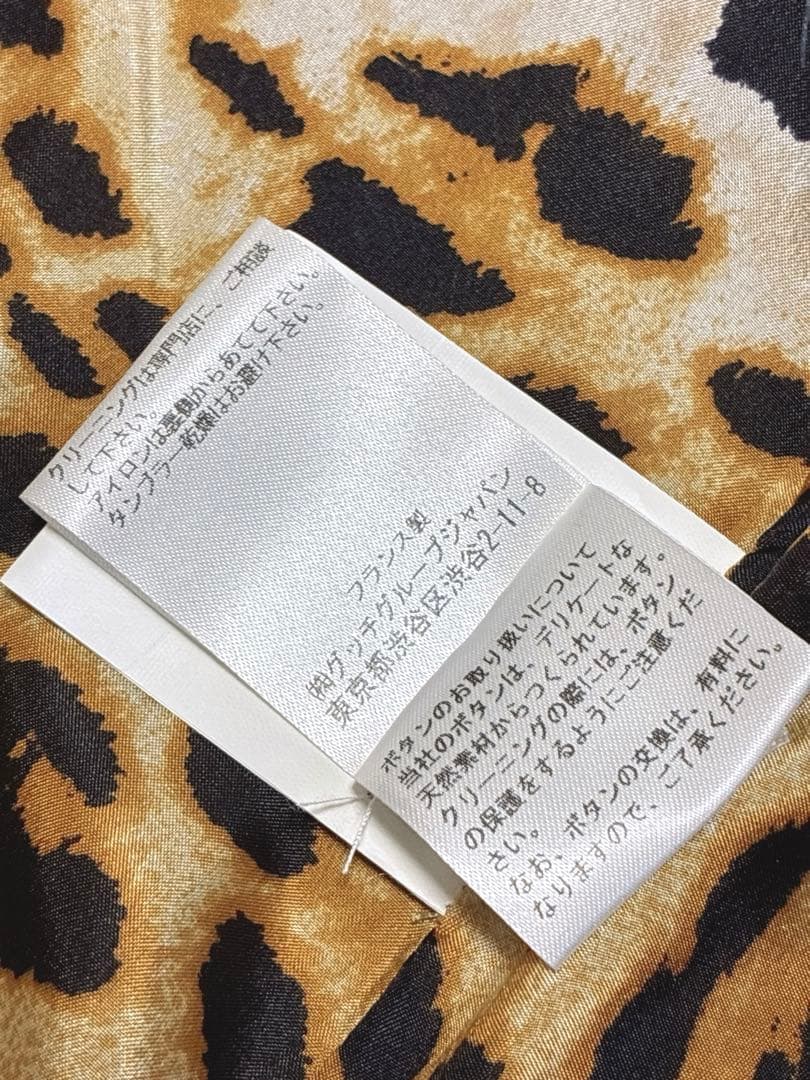 クリーニングは専門店に、ご相談
して下さい。
アイロンは裏側からあてて下さい。
タンブラー乾燥はお避け下さい。
フランス製
㈱グッチグループジャパン
東京都渋谷区渋谷2-11-8
ボタンのお取り扱いについて
当社のボタンは、デリケートな
天然素材からつくられています。
クリーニングの際には、ボタン
の保護をするようにご注意くだ
さい。
なお、ボタンの交換は、有料に
なりますので、ご了承ください。